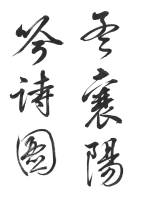 孟襄陽
吟詩圖